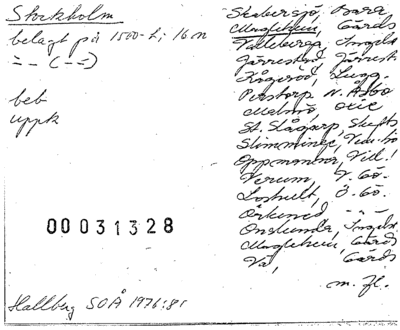 Stockholm
belagt på 1500-t; 16 n
=- (--)
beb
uppk
00031328
Hallberg SOÅ 1976:81
Skabersjö, Bara
Maglehem, Gärds
Valleberga, Ingels
Järrestad, Järrest
Kågeröd, Lugg.
Perstorp N. Åsbo
Malmö, Oxie
St. Slågarp, Skytts
Slimminge, Vem.hö
Oppmanna, Vill.
Verum, V. Gö.
Loshult, Ö. Gö.
Örkened, -"-
Onslunda, Ingels
Maglehem, Gärds
Vä, Gärds
m. fl.